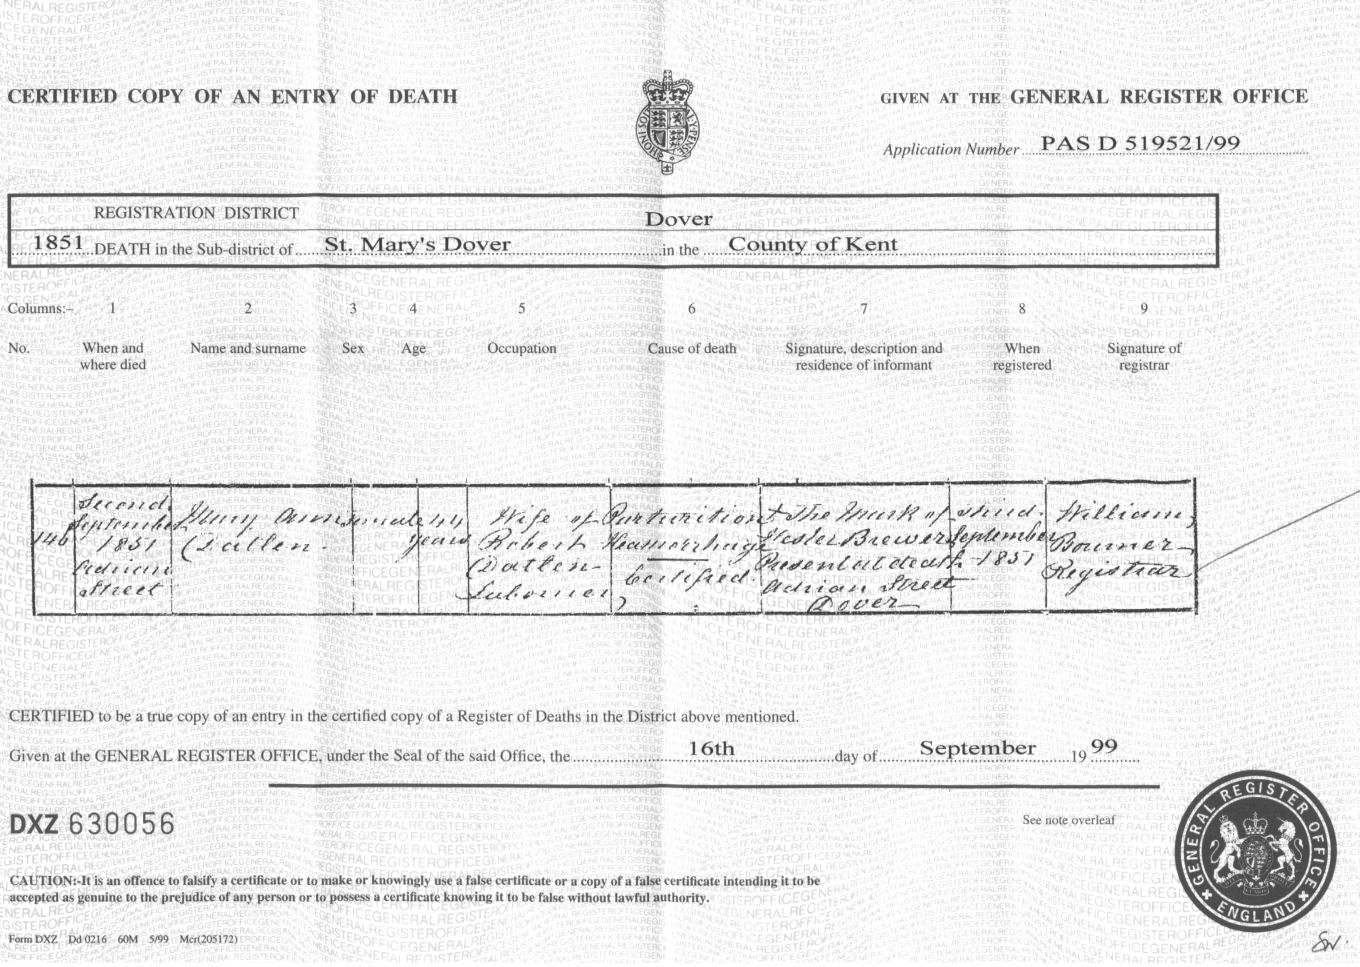 CERTIFIED COPY OF AN ENTRY OF DEATH
GIVEN AT THE GENERAL REGISTER OFFICE
Application Number PAS D 519521/99
REGISTRATION DISTRICT Dover
1851 DEATH in the Sub-district of St. Mary's Dover in the County of Kent
Columns:- 1 2 3 4 5 6 7 8 9
No. When and where died Name and surname Sex Age Occupation Cause of death Signature, description and residence of informant When registered Signature of registrar
146
Second
September
1851
Adrian
Street
Mary Ann
Datlen
Female
44
years
Wife of
Robert
Datlen
Labourer
Parturition
Heamorrhage
Certified.
X The Mark of
Hester Brewer
Present at death
Adrian Street
Dover
Third
September
1851
William
Bourner
Registrar
CERTIFIED to be a true copy of an entry in the certified copy of a Register of Deaths in the District above mentioned.
Given at the GENERAL REGISTER OFFICE, under the Seal of the said Office, the 16th day of September 19 99
DXZ 630056
See note overleaf
CAUTION:-It is an offence to falsify a certificate or to make or knowingly use a false certificate or a copy of a false certificate intending it to be
accepted as genuine to the prejudice of any person or to possess a certificate knowing it to be false without lawful authority.
Form DXZ Dd 0216 60M 5/99 Mcr(205172)
GENERAL REGISTER OFFICE
ENGLAND